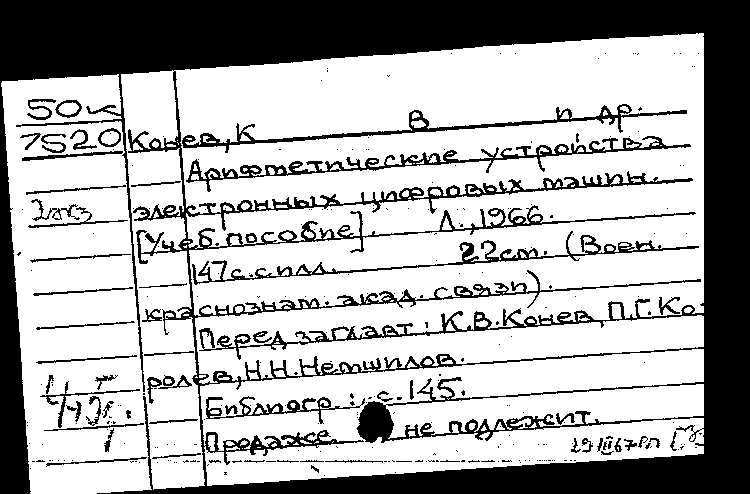 50к
7520 Конев, К В и др.
Арифметические устройства
2экз электронных цифровых машин.
[Учеб. пособие]. Л., 1966.
147с. с илл. 22см. (Воен.
краснознам. акад. связи).
Перед загл авт: К.В. Конев, П.Г. Ко-
ролев, Н.Н. Немшилов.
Библиогр.: с. 145.
Продаже не подлежит.